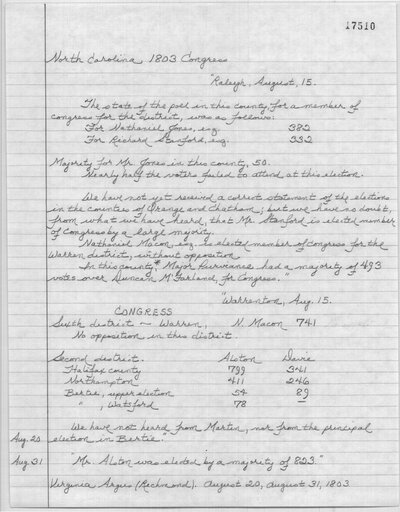 17510
North Carolina, 1803 Congress
"Raleigh, August, 15.
The state of the poll in this county, for a member of
congress for the district, was as follows:
For Nathaniel Jones, esq. 382
For Richard Stanford, esq. 332
Majority for Mr. Jones in this county, 50.
Nearly half the voters failed to attend at this election.
We have not yet received a correct statement of the elections
in the counties of Orange and Chatham; but we have no doubt,
from what we have heard, that Mr. Stanford is elected member
of Congress by a large majority.
Nathaniel Macon, esq. is elected member of congress for the
Warren district, without opposition
In this county, Major Purviance had a majority of 493
votes over Duncan M'Farland, for Congress."
"Warrenton, Aug. 15.
CONGRESS
Sixth district — Warren, N. Macon 741
No opposition in this district.
Second district. Alston Davie
Halifax county 799 341
Northampton 411 246
Bertie, upper election 54 89
" , Watsford 78 —
We have not heard from Martin, nor from the principal
Aug. 20 election in Bertie."
Aug. 31 "Mr. Alston was elected by a majority of 823."
Virginia Argus (Richmond). August 20, August 31, 1803